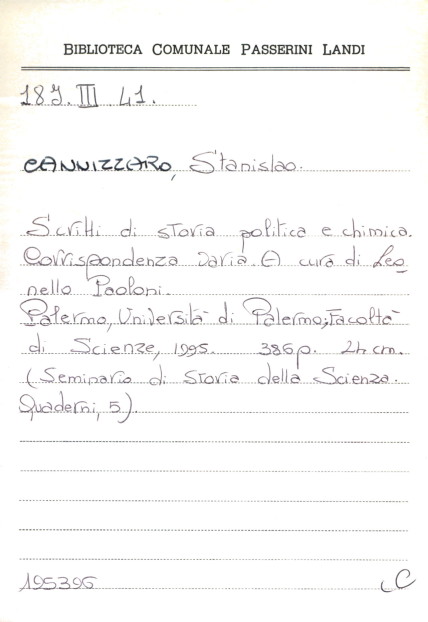 BIBLIOTECA COMUNALE PASSERINI LANDI
187. III 41.
CANNIZZARO, Stanislao.
Scritti di storia politica e chimica.
Corrispondenza varia. A cura di Leo
nello Paoloni.
Palermo, Università di Palermo; Facoltà
di Scienze, 1995. 386 p. 24 cm.
(Seminario di storia della Scienza.
Quaderni, 5).
195396 C